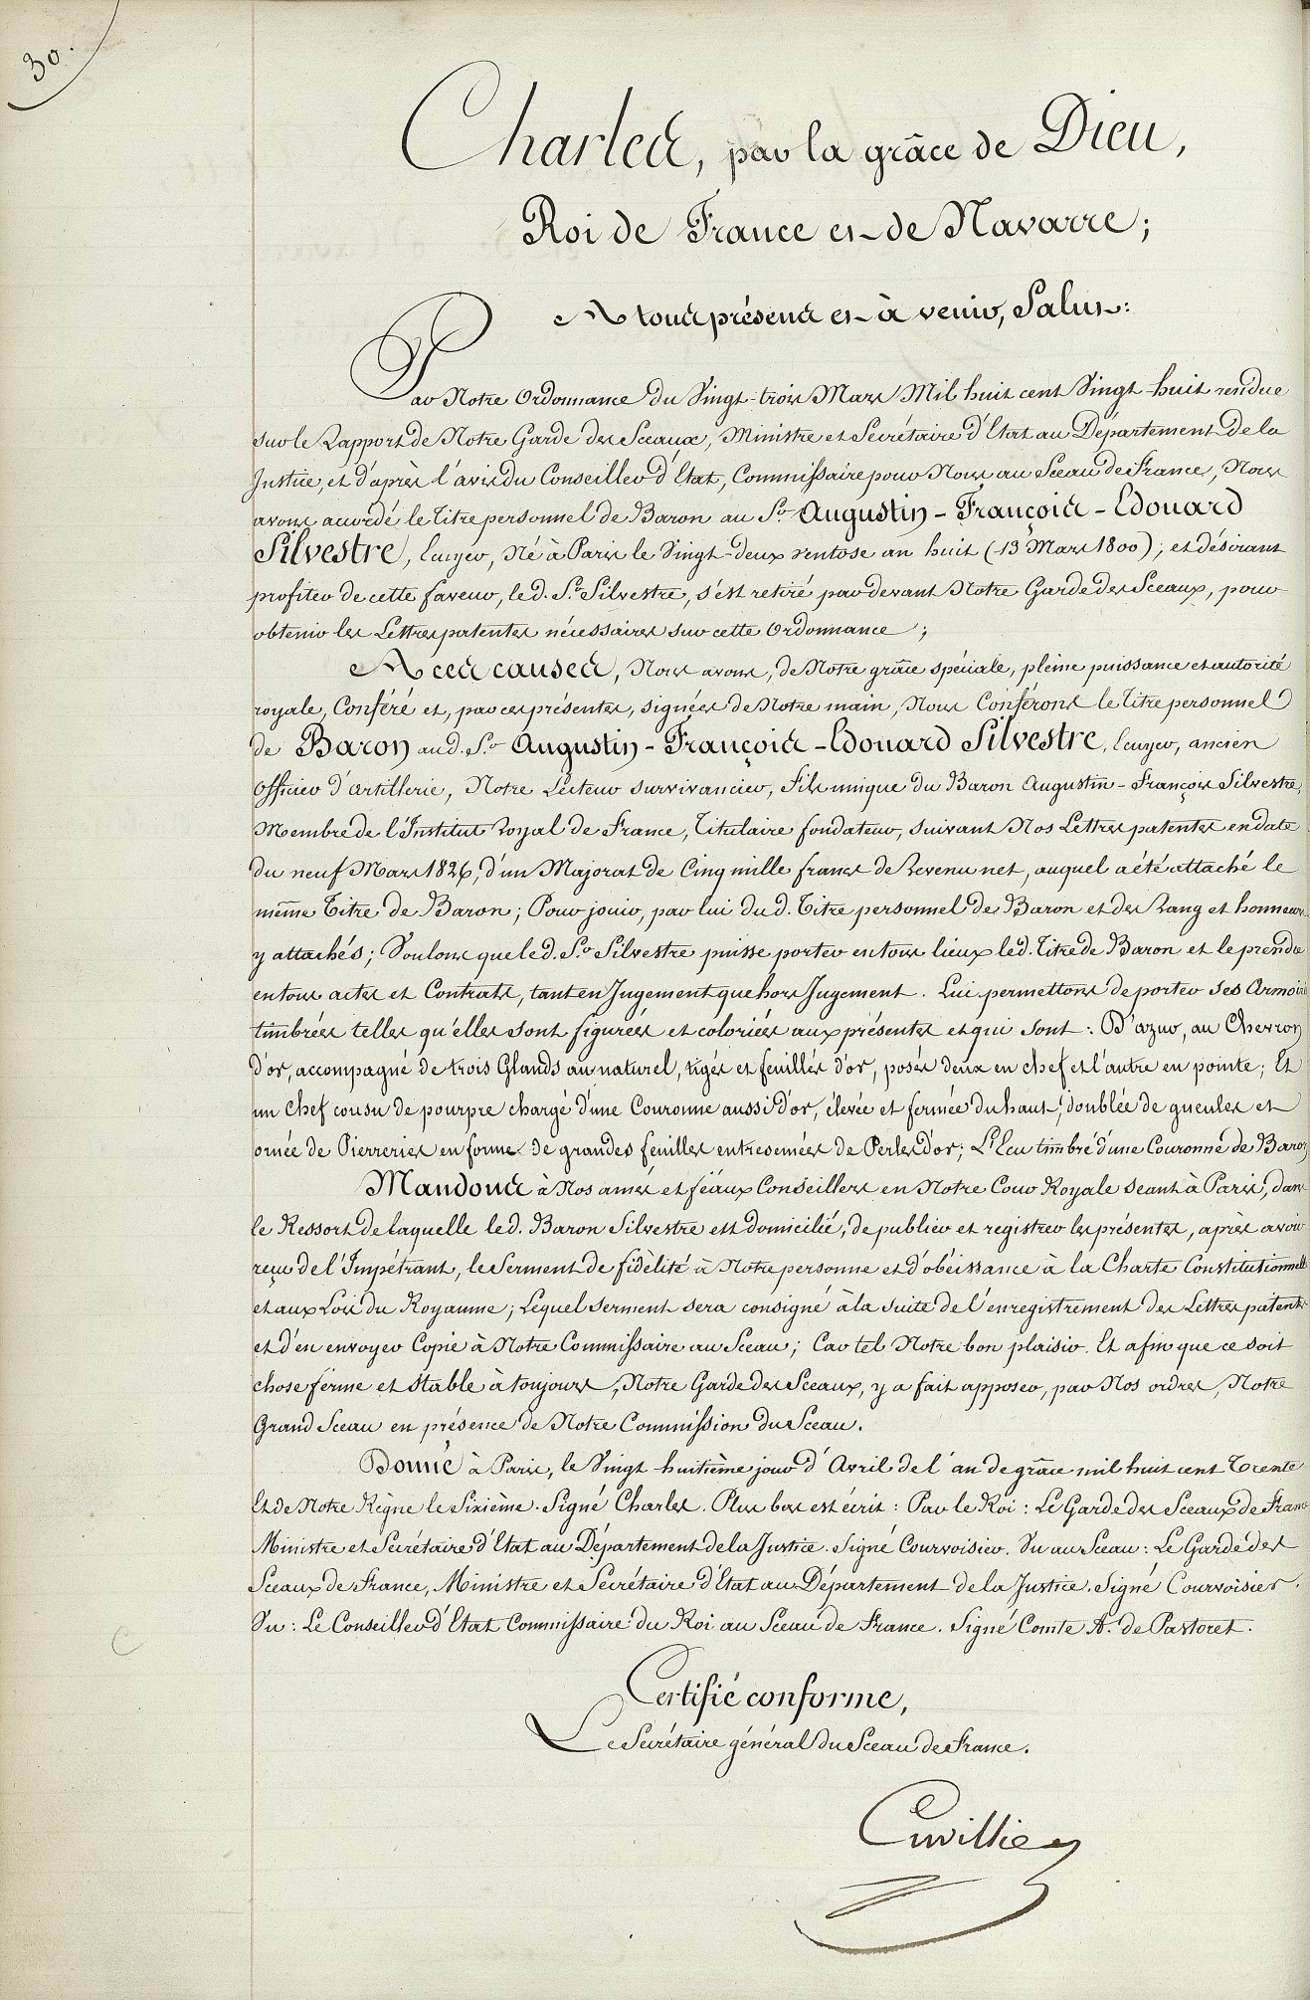 30.
Charles, par la grâce de Dieu,
Roi de France et de Navarre;
A tous présens et à venir, Salut:
Par Notre Ordonnance du Vingt-trois Mars Mil huit cent Vingt-huit rendue
sur le Rapport de Notre Garde des Sceaux, Ministre et Secrétaire d'Etat au Département de la
Justice, et d'après l'avis du Conseiller d'Etat, Commissaire pour Nous au Sceau de France, Nous
avons accordé le Titre personnel de Baron au Sr. Augustin-François-Edouard
Silvestre, Ecuyer, Né à Paris le Vingt-deux ventose an huit (13 Mars 1800); et désirant
profiter de cette faveur, le d. Sr. Silvestre, s'est retiré par devant Notre Garde des Sceaux, pour
obtenir les Lettres patentes nécessaires sur cette Ordonnance;
A ces causes, Nous avons, de Notre grâce spéciale, pleine puissance et autorité
royale, Conféré et, par ces présentes, signées de Notre main, Nous Conférons le Titre personnel
de Baron au d. Sr. Augustin-François-Edouard Silvestre, Ecuyer, ancien
Officier d'artillerie, Notre Lecteur survivancier, Fils unique du Baron Augustin-François Silvestre,
Membre de l'Institut Royal de France, Titulaire fondateur, suivant Nos Lettres patentes en date
du neuf Mars 1826, d'un Majorat de Cinq mille francs de Revenu net, auquel a été attaché le
même Titre de Baron; Pour jouir, par lui du d. Titre personnel de Baron et des Rang et honneurs
y attachés; Voulons que le d. Sr. Silvestre puisse porter en tous lieux le d. Titre de Baron et le prendre
en tous actes et Contrats, tant en Jugement que hors Jugement. Lui permettons de porter ses Armoiries
timbrées telles qu'elles sont figurées et coloriées aux présentes et qui sont: D'azur, au Chevron
d'or, accompagné de trois Glands au naturel, tigés et feuillés d'or, posés deux en chef et l'autre en pointe; Et
un Chef cousu de pourpre chargé d'une Couronne aussi d'or, élevée et fermée du haut, doublée de gueules et
ornée de Pierreries en forme de grandes feuilles entresemées de Perles d'or; L'Ecu timbré d'une Couronne de Baron
Mandons à Nos amés et féaux Conseillers en Notre Cour Royale seant à Paris, dans
le Ressort de laquelle le d. Baron Silvestre est domicilié, de publier et registrer les présentes, après avoir
reçu de l'Impétrant, le Serment de fidèlité à Notre personne et d'obéissance à la Charte Constitutionnelle
et aux Lois du Royaume; Lequel serment sera consigné à la suite de l'enregistrement des Lettres patentes
et d'en envoyer Copie à Notre Commissaire au Sceau; Car tel Notre bon plaisir. Et afin que ce soit
chose ferme et stable à toujours, Notre Garde des Sceaux, y a fait apposer, par Nos ordres, Notre
Grand Sceau en présence de Notre Commission du Sceau.
Donné à Paris, le Vingt-huitième jour d'Avril de l'an de grâce mil huit cent Trente
Et de Notre Règne le Sixième. Signé Charles. Plus bas est écrit: Par le Roi: Le Garde des Sceaux de France
Ministre et Secrétaire d'Etat au Département de la Justice. Signé Courvoisier. Vu au Sceau: Le Garde des
Sceaux de France, Ministre et Secrétaire d'Etat au Département de la Justice. Signé Courvoisier.
Vu: Le Conseiller d'Etat Commissaire du Roi au Sceau de France. Signé Comte A. de Pastoret.
C
Certifié conforme,
Le Secrétaire général du Sceau de France.
Cuvillier